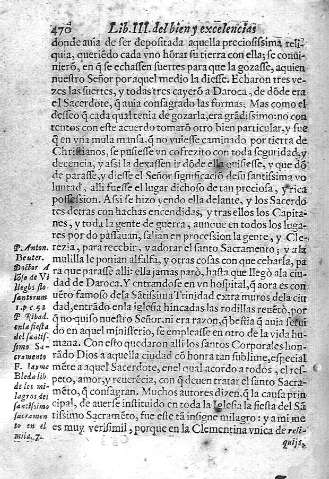 470 Lib. III. del bien y excelencias
donde auia de ser depositada aquella preciosissima reli-
quia, queriēdo cada vno hōrar su tierra con ella; se conui-
nierō, en q̄ se echassen suertes para que la gozasse, aquien
nuestro Señor por aquel medio la diesse. Echaron tres ve-
zes las suertes, y todas tres cayerō a Daroca, de dōde era
el Sacerdote, q̄ auia consagrado las formas. Mas como el
desseo q̄ cada qual tenia de gozarla, era grādissimo: no con
tentos con este acuerdo tomarō otro bien particular, y fue
q̄ en vna mula mansa, q̄ no vuiesse caminado por tierra de
Christianos, se pusiesse vn cofrezito con toda seguridad, y
decencia, y assi la dexassen ir dōde ella quisiesse, y que dō
de parasse, y diesse el Señor significaciō de su santissima vo
luntad, alli fuesse el lugar dichoso de tan preciosa, y rica
possession. Assi se hizo yendo ella delante, y los Sacerdo
tes detras con hachas encendidas, y tras ellos los Capita-
nes, y toda la gente de guerra, aunque en todos los luga-
res por do passauan, salian en procession la gente, y Cle-
rezia, para recebir, y adorar el santo Sacramento, y a la
mulilla le ponian alfalfa, y otras cosas con que cebarla, pa
ra que parasse alli: ella jamas parò, hasta que llegò ala ciu
dad de Daroca. Y entrandose en vn hospital, q̄ aora es con
uēto famoso dela Sātissima Trinidad extra muros dela ciu
dad, entrò en la iglesia hincadas las rodillas reuētò, por
q̄ no quiso nuestro Señor, ni era razon, q̄ bestia q̄ auia serui
do en aquel ministerio, se empleasse en otro de la vida hu-
mana. Con esto quedaron alli los santos Corporales hon-
rādo Dios a aquella ciudad cō honra tan sublime, especial
mēte a aquel Sacerdote, en el qual acordo a todos, el res-
peto, amor, y reuerēcia, con q̄ deuen tratar el santo Sacra-
mēto, q̄ consagran. Muchos autores dizen, q̄ la causa prin
cipal, de auerse instituido en toda la Iglesia la fiesta del Sā
tissimo Sacramēto, fue este tā insigne milagro: y a mi me
es muy verisimil, porque en la Clementina vnica de reli-
quijs,
P. Anton.
Beuter.
Doctor A
lōso de Vi
llegas
santorum
P. Ribad.
en la fiesta
del santis-
simo Sa-
cramento
F. Jayme
Bleda lib
de los mi-
lagros del
santissimo
sacramen
to en el